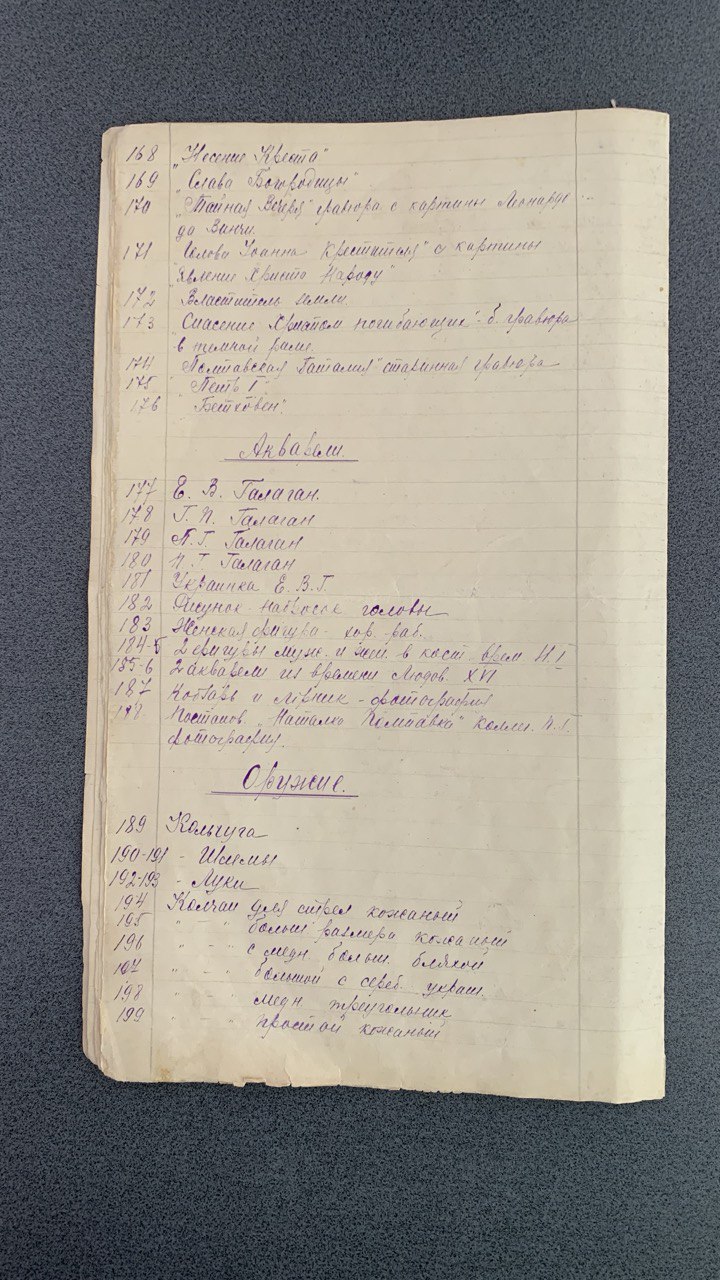 168 „Несение Креста"
169 „Слава Богородицы"
170 „Тайная Вечеря" гравюра с картины Леонардо
да Винчи.
171 „Голова Иоанна Крестителя" с картины
„Явление Христа Народу"
172 Властитель земли
173 „Спасение Христом погибающих" - б. гравюра
в темной раме.
174 „Полтавская Баталия" старинная гравюра
175 „Петр I"
176 „Бетховен".
Акварели.
177 Е. В. Галаган.
178 Г. П. Галаган
179 П. Г. Галаган
180 П. Г. Галаган
181 Украинка Е. В. Г.
182 Рисунок - набросок головы
183 Женская фигура - хор. раб.
184-5 2 фигуры муж. и жен. в кост. врем. Н. I
185-6 2 акварели из времени Людов. XVI
187 Кобзарь и лірник - фотография
188 Постанов. „Наталка Полтавка" Коллег. П. Г.
фотография.
Оружие.
189 Кольчуга
190-191 - Шлемы
192-193 - Луки
194 Колчан для стрел кожаный
195 " - " больш. размера кожаный
196 " - " с медн. больш. бляхой
197 " - " большой с сереб. украш.
198 " - " медн. треугольник
199 " - " простой кожаный